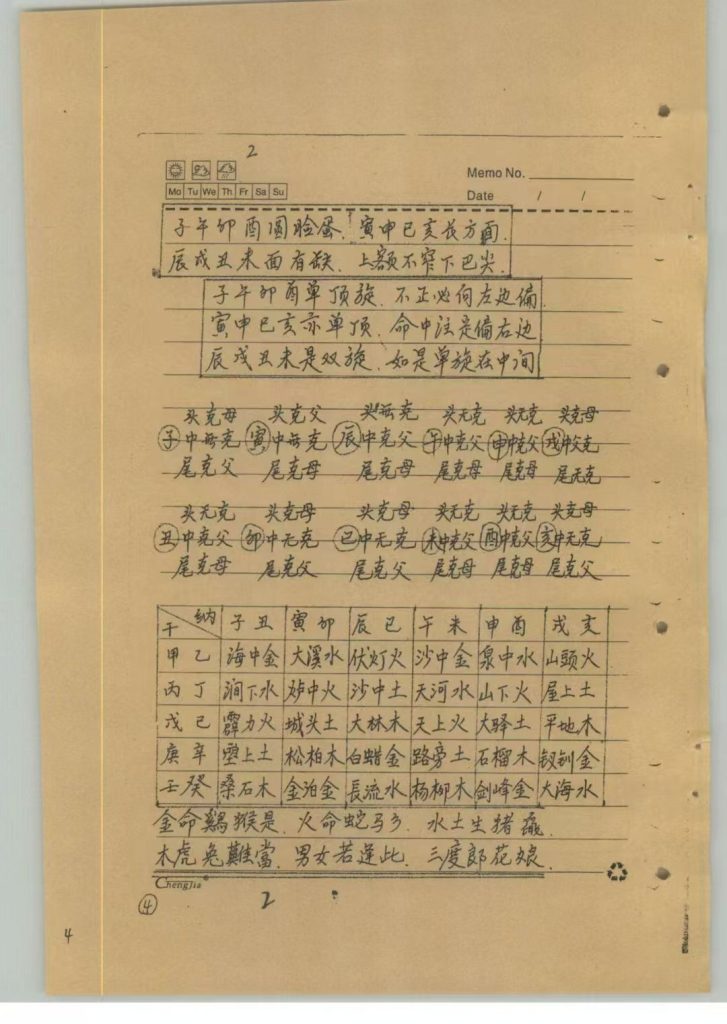 2
Memo No.
Mo Tu We Th Fr Sa Su
Date / /
子午卯酉圆脸蛋、寅申巳亥长方面.
辰戌丑未面有缺、上额不窄下巴尖.
子午卯酉单顶旋、不正必向左边偏
寅申巳亥亦单顶、命中注定偏右边
辰戌丑未是双旋、如是单旋在中间
头克母 头克父 头无克 头无克 头无克 头克母
子中无克 寅中无克 辰中克父 午中克父 申中克父 戌中父克
尾克父 尾克母 尾克母 尾克母 尾克母 尾无克
头无克 头克母 头克母 头无克 头无克 头克母
丑中克父 卯中无克 巳中无克 未中克父 酉中克父 亥中无克
尾克母 尾克父 尾克父 尾克母 尾克母 尾克父
干 纳 子丑 寅卯 辰巳 午未 申酉 戌亥
甲乙 海中金 大溪水 伏灯火 沙中金 泉中水 山頭火
丙丁 涧下水 炉中火 沙中土 天河水 山下火 屋上土
戊己 霹力火 城头土 大林木 天上火 大驿土 平地木
庚辛 壁上土 松柏木 白蜡金 路旁土 石榴木 钗钏金
壬癸 桑石木 金泊金 長流水 杨柳木 剑峰金 大海水
金命鷄猴是、火命蛇马乡、水土生猪
木虎兔難當、男女若逢此、三度郎花娘.
Chengjia
④ 2
4